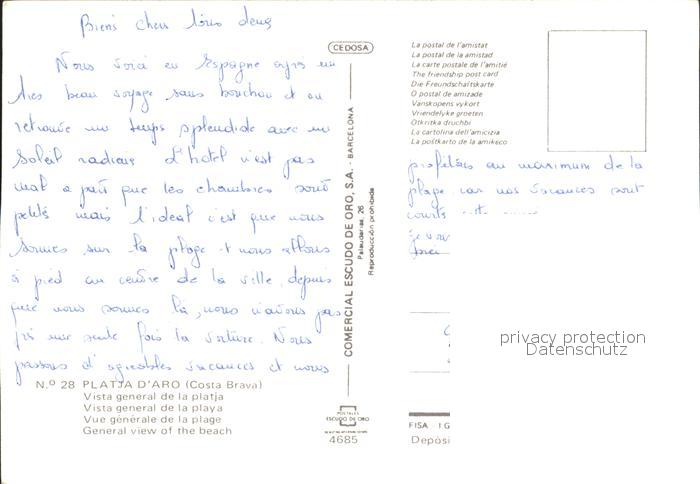 Biens chers tous deux
Nous voici en Espagne après un
très beau voyage sans bouchon et on
retrouve un temps splendide avec un
Soleil radieux l'hotel n'est pas
mal a part que les chambres sont
petits mais l'ideal c'est que nous
sommes sur la plage et nous allons
à pied au centre de la ville, depuis
que nous sommes là, nous n'avons pas
pris une seule fois la voiture. Nous
passons d'agréables vacances et nous
N.º 28 PLATJA D'ARO (Costa Brava)
Vista general de la platja
Vista general de la playa
Vue générale de la plage
General view of the beach
CEDOSA
COMERCIAL ESCUDO DE ORO, S.A. - BARCELONA
Palaudarias, 26
Reproducción prohibida
POSTALES
ESCUDO DE ORO
4685
La postal de l'amistat
La postal de la amistad
La carte postale de l'amitié
The friendship post card
Die Freundschaftskarte
O postal de amizade
Vanskopens vykort
Vriendelyke groeten
Otkritka druchbi
La cartolina dell'amicizia
La postkarto de la amikeco
profitons au maximum de la
plage car nos vacances sont
courts
je vous
FISA - I G
Depósi
privacy protection
Datenschutz